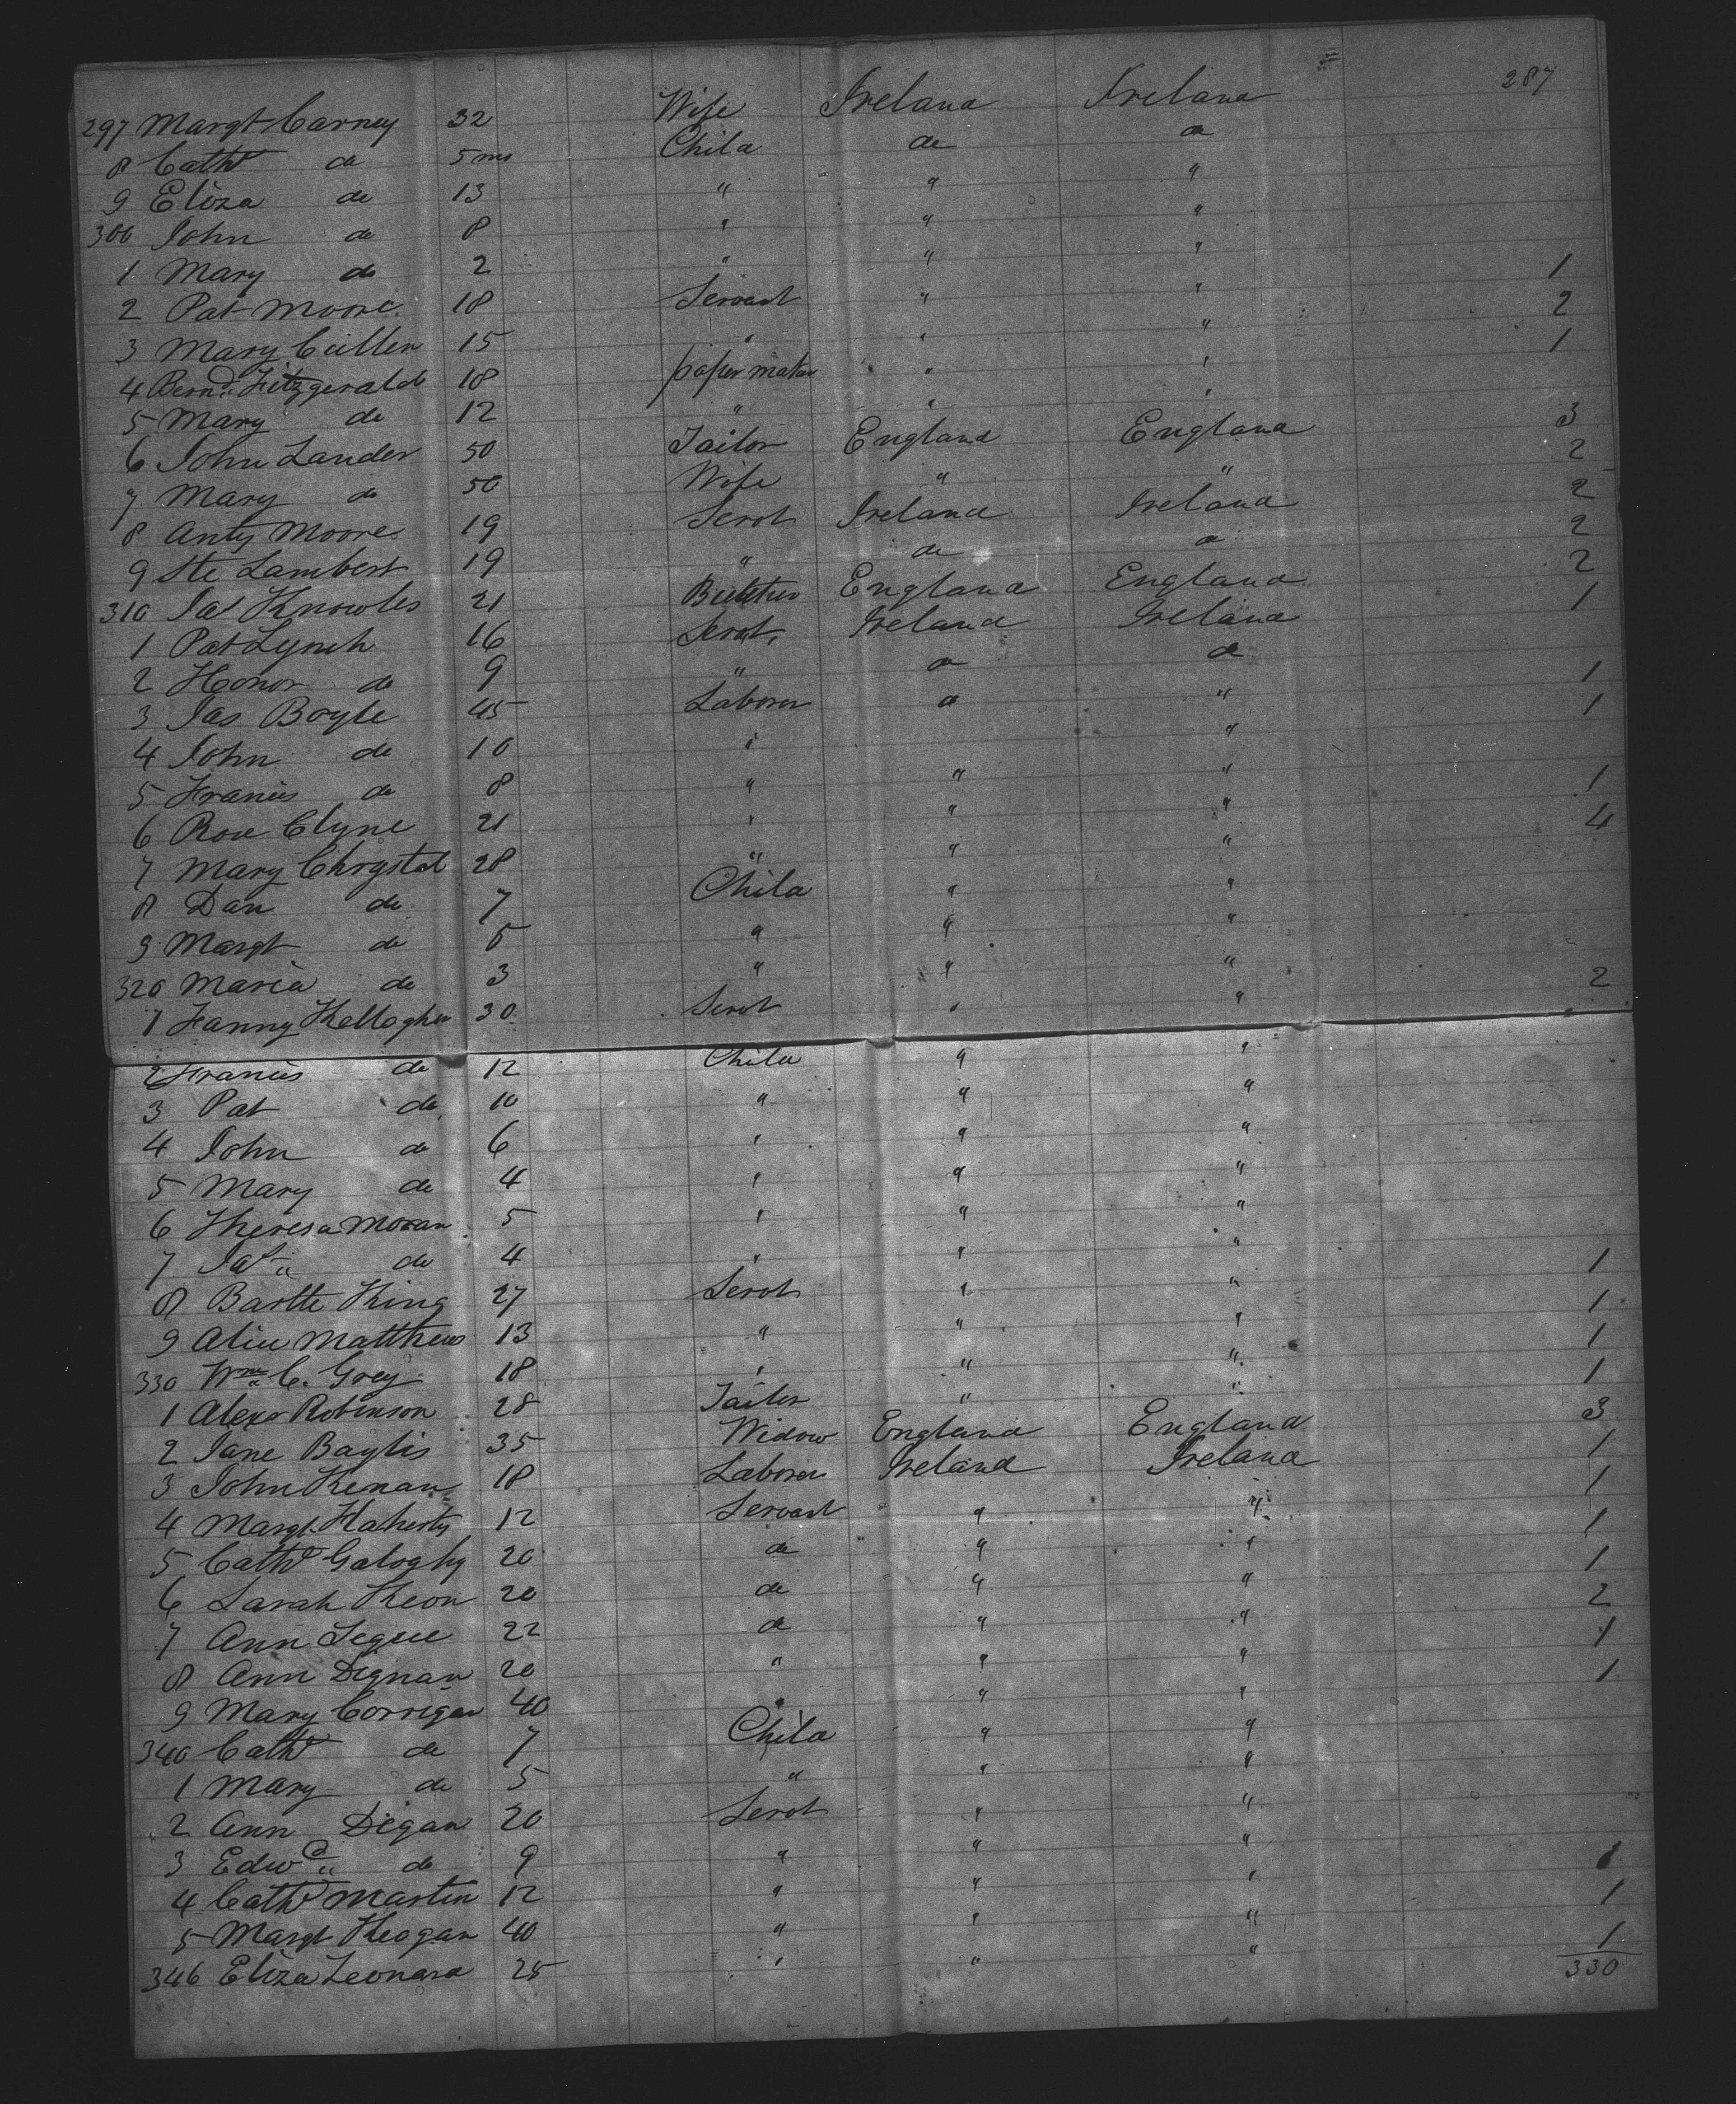 287
297 Margt Carney 32 Wife Ireland Ireland
8 Cathe do 5 ms Child do do
9 Eliza do 13 " " "
300 John do 8 " " "
1 Mary do 2 " " "
2 Pat Moore 18 Servant " " 1
3 Mary Cullen 15 " " " 2
4 Bernd Fitzgerald 18 paper maker " " 1
5 Mary do 12 " " "
6 John Lander 50 Tailor England England 3
7 Mary do 50 Wife " " 2
8 Anty Moore 19 Servt Ireland Ireland 2
9 Ste Lambert 19 " do do 2
310 Jas Knowles 21 Butcher England England 2
1 Pat Lynch 16 Servt. Ireland Ireland 1
2 Honor do 9 " do do
3 Jas Boyle 45 Laborer do " 1
4 John do 10 " " 1
5 Francis do 8 " " "
6 Rose Clyne 21 " " " 1
7 Mary Chrystal 28 " " " 4
8 Dan do 7 Child " "
9 Margt do 5 " " "
320 Maria do 3 " " "
1 Fanny Kellogher 30 Servt " " 2
2 Francis do 12 Child " "
3 Pat do 10 " " "
4 John do 6 " " "
5 Mary do 4 " " "
6 Theresa Moran 5 " " "
7 Jas " do 4 " " "
8 Bartte King 27 Servt " " 1
9 Alice Matthews 13 " " " 1
330 Wm C. Grey 18 " " " 1
1 Alexr Robinson 28 Tailor " " 1
2 Jane Baylis 35 Widow England England 3
3 John Kenan 18 Laborer Ireland Ireland 1
4 Margt Flaherty 12 Servant " " 1
5 Cathe Galoghy 20 do " " 1
6 Sarah Keon 20 do " " 1
7 Ann Segue 22 do " " 2
8 Ann Dignan 20 " " " 1
9 Mary Corrigan 40 " " " 1
340 Cathe do 7 Child " "
1 Mary do 5 " " "
2 Ann Digan 20 Servt " "
3 Edwd " do 9 " " "
4 Cathe Martin 12 " " " 1
5 Margt Keogan 40 " " " 1
346 Eliza Leonard 25 " " " 1
330